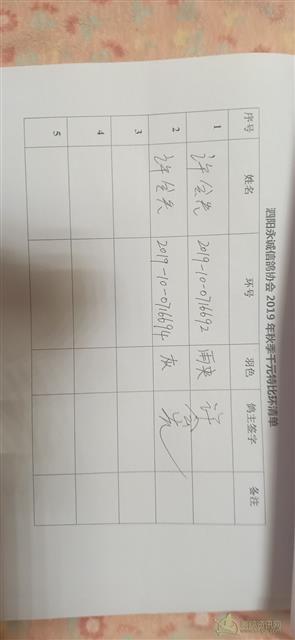 泗阳永诚信鸽协会 2019 年秋季千元特比环清单
序号 姓名 环号 羽色 鸽主签字 备注
1 许会光 2019-10-0716692 雨夹 许会光
2 许会光 2019-10-0716694 灰
3
4
5